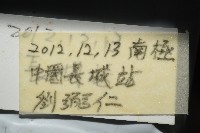 2012
2012,12,13 南極
中國長城站
劉強仁